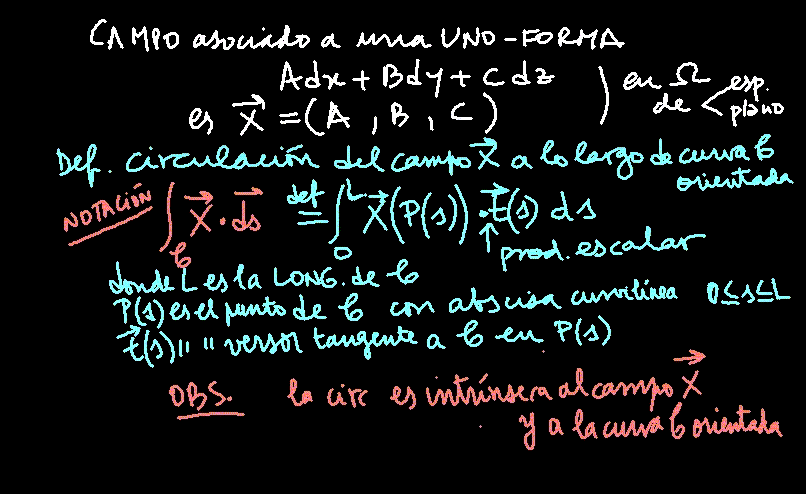 CAMPO asociado a una UNO-FORMA
Adx + Bdy + Cdz ) en Ω de < esp. plano
es X⃗ = (A, B, C)
Def. circulación del campo X⃗ a lo largo de curva C orientada
NOTACIÓN ∫_C X⃗ · d⃗s def= ∫_0^L X⃗(P(s)) · t⃗(s) ds
prod. escalar
donde L es la LONG. de C
P(s) es el punto de C con abscisa curvilínea 0≤s≤L
t⃗(s) " " versor tangente a C en P(s)
OBS. la circ es intrínseca al campo X⃗
y a la curva C orientada